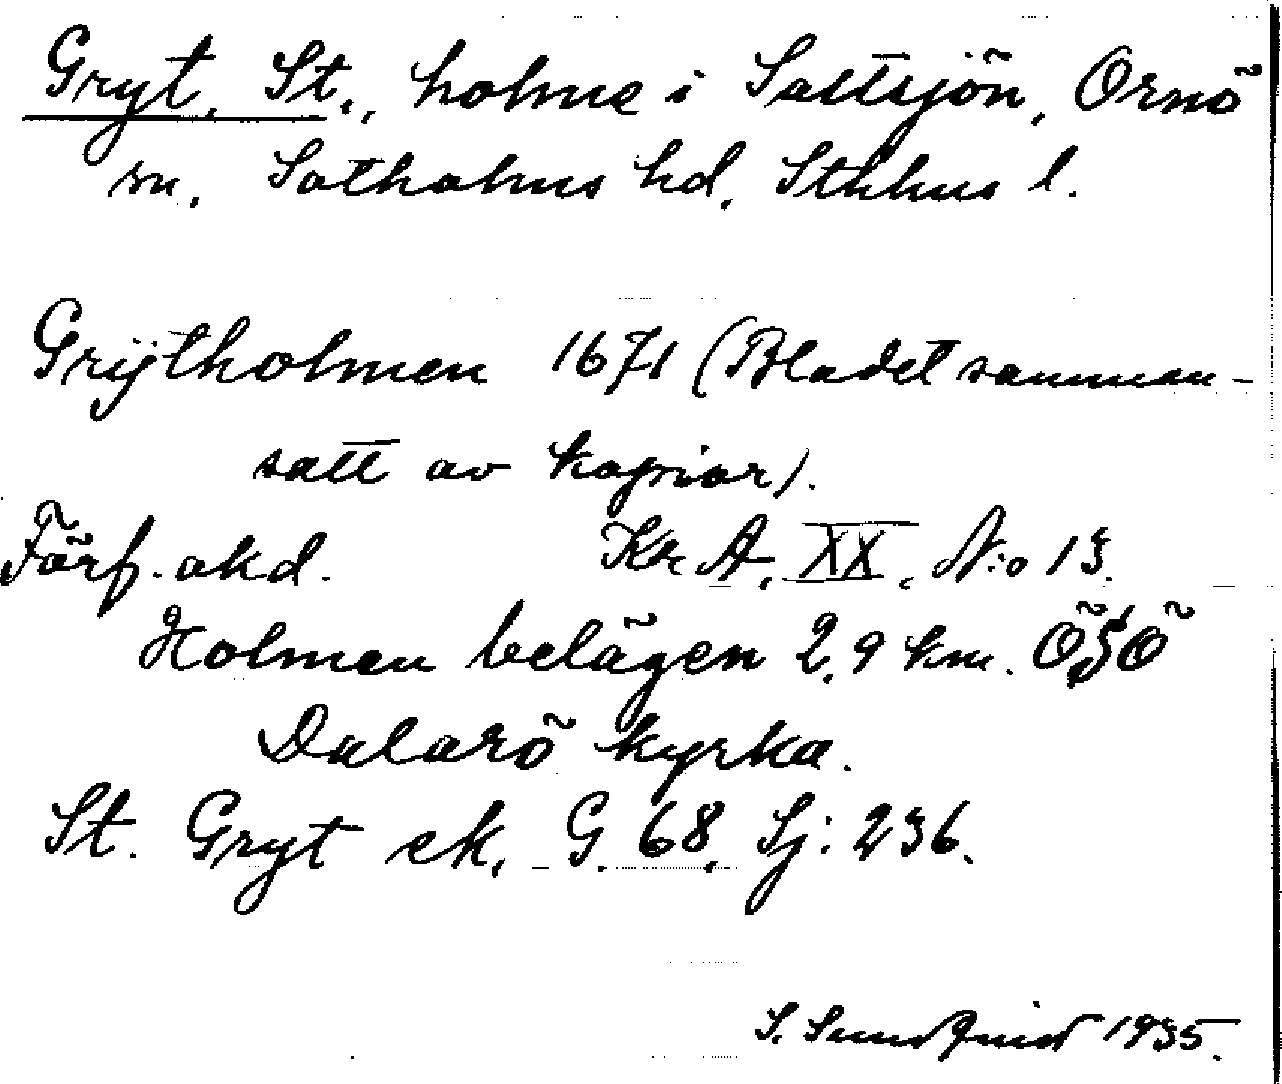 Gryt, St., holme i Saltsjön, Ornö
sn, Sotholms hd, Sthlms l.
Grÿtholmen 1671 (Bladet samman-
satt av kopior).
Förf. okd. Kr A, XX, N:o 13.
Holmen belägen 2,9 km. ÖSÖ
Dalarö kyrka.
St. Gryt ek, G. 68, Sj: 236.
S. Sundquist 1935.